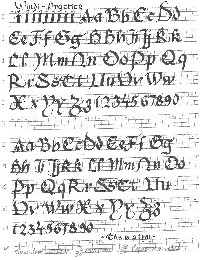 Aa Bb Cc Dd
Ee Ff Gg Hh Ii Jj Kk
Ll Mm Nn Oo Pp Qq
Rr Ss Tt Uu Vv Ww
Xx Yy Zz 1234567890
Aa Bb Cc Dd Ee Ff Gg
Hh Ii Jj Kk Ll Mm Nn Oo
Pp Qq Rr Ss Tt Uu
Vv Ww Xx Yy Zz
1234567890